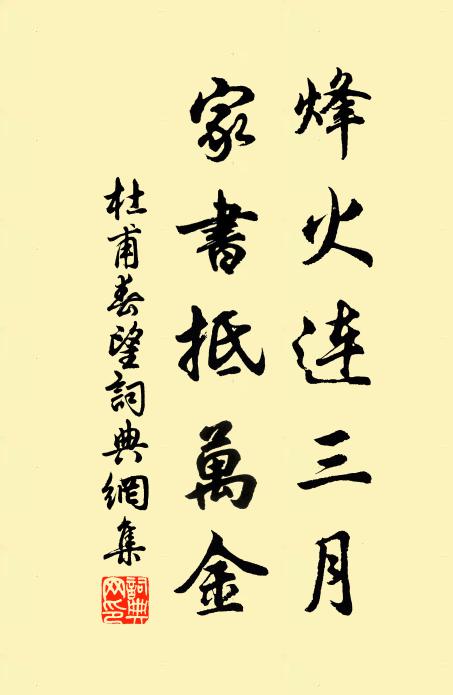 烽火連三月
家書抵萬金
杜甫春望詞典網集
詞典網印